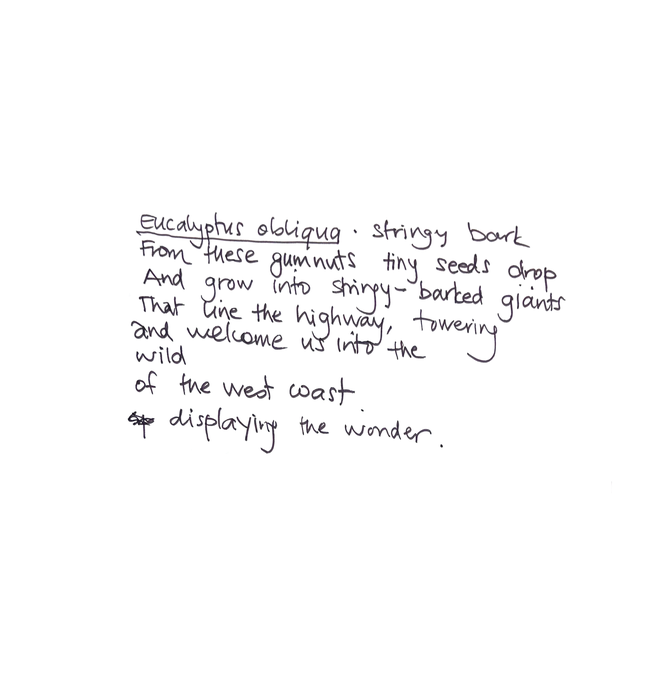 Eucalyptus obliqua. stringy bark
From these gumnuts tiny seeds drop
And grow into stringy-barked giants
That line the highway, towering
and welcome us into the
wild
of the west coast
displaying the wonder.